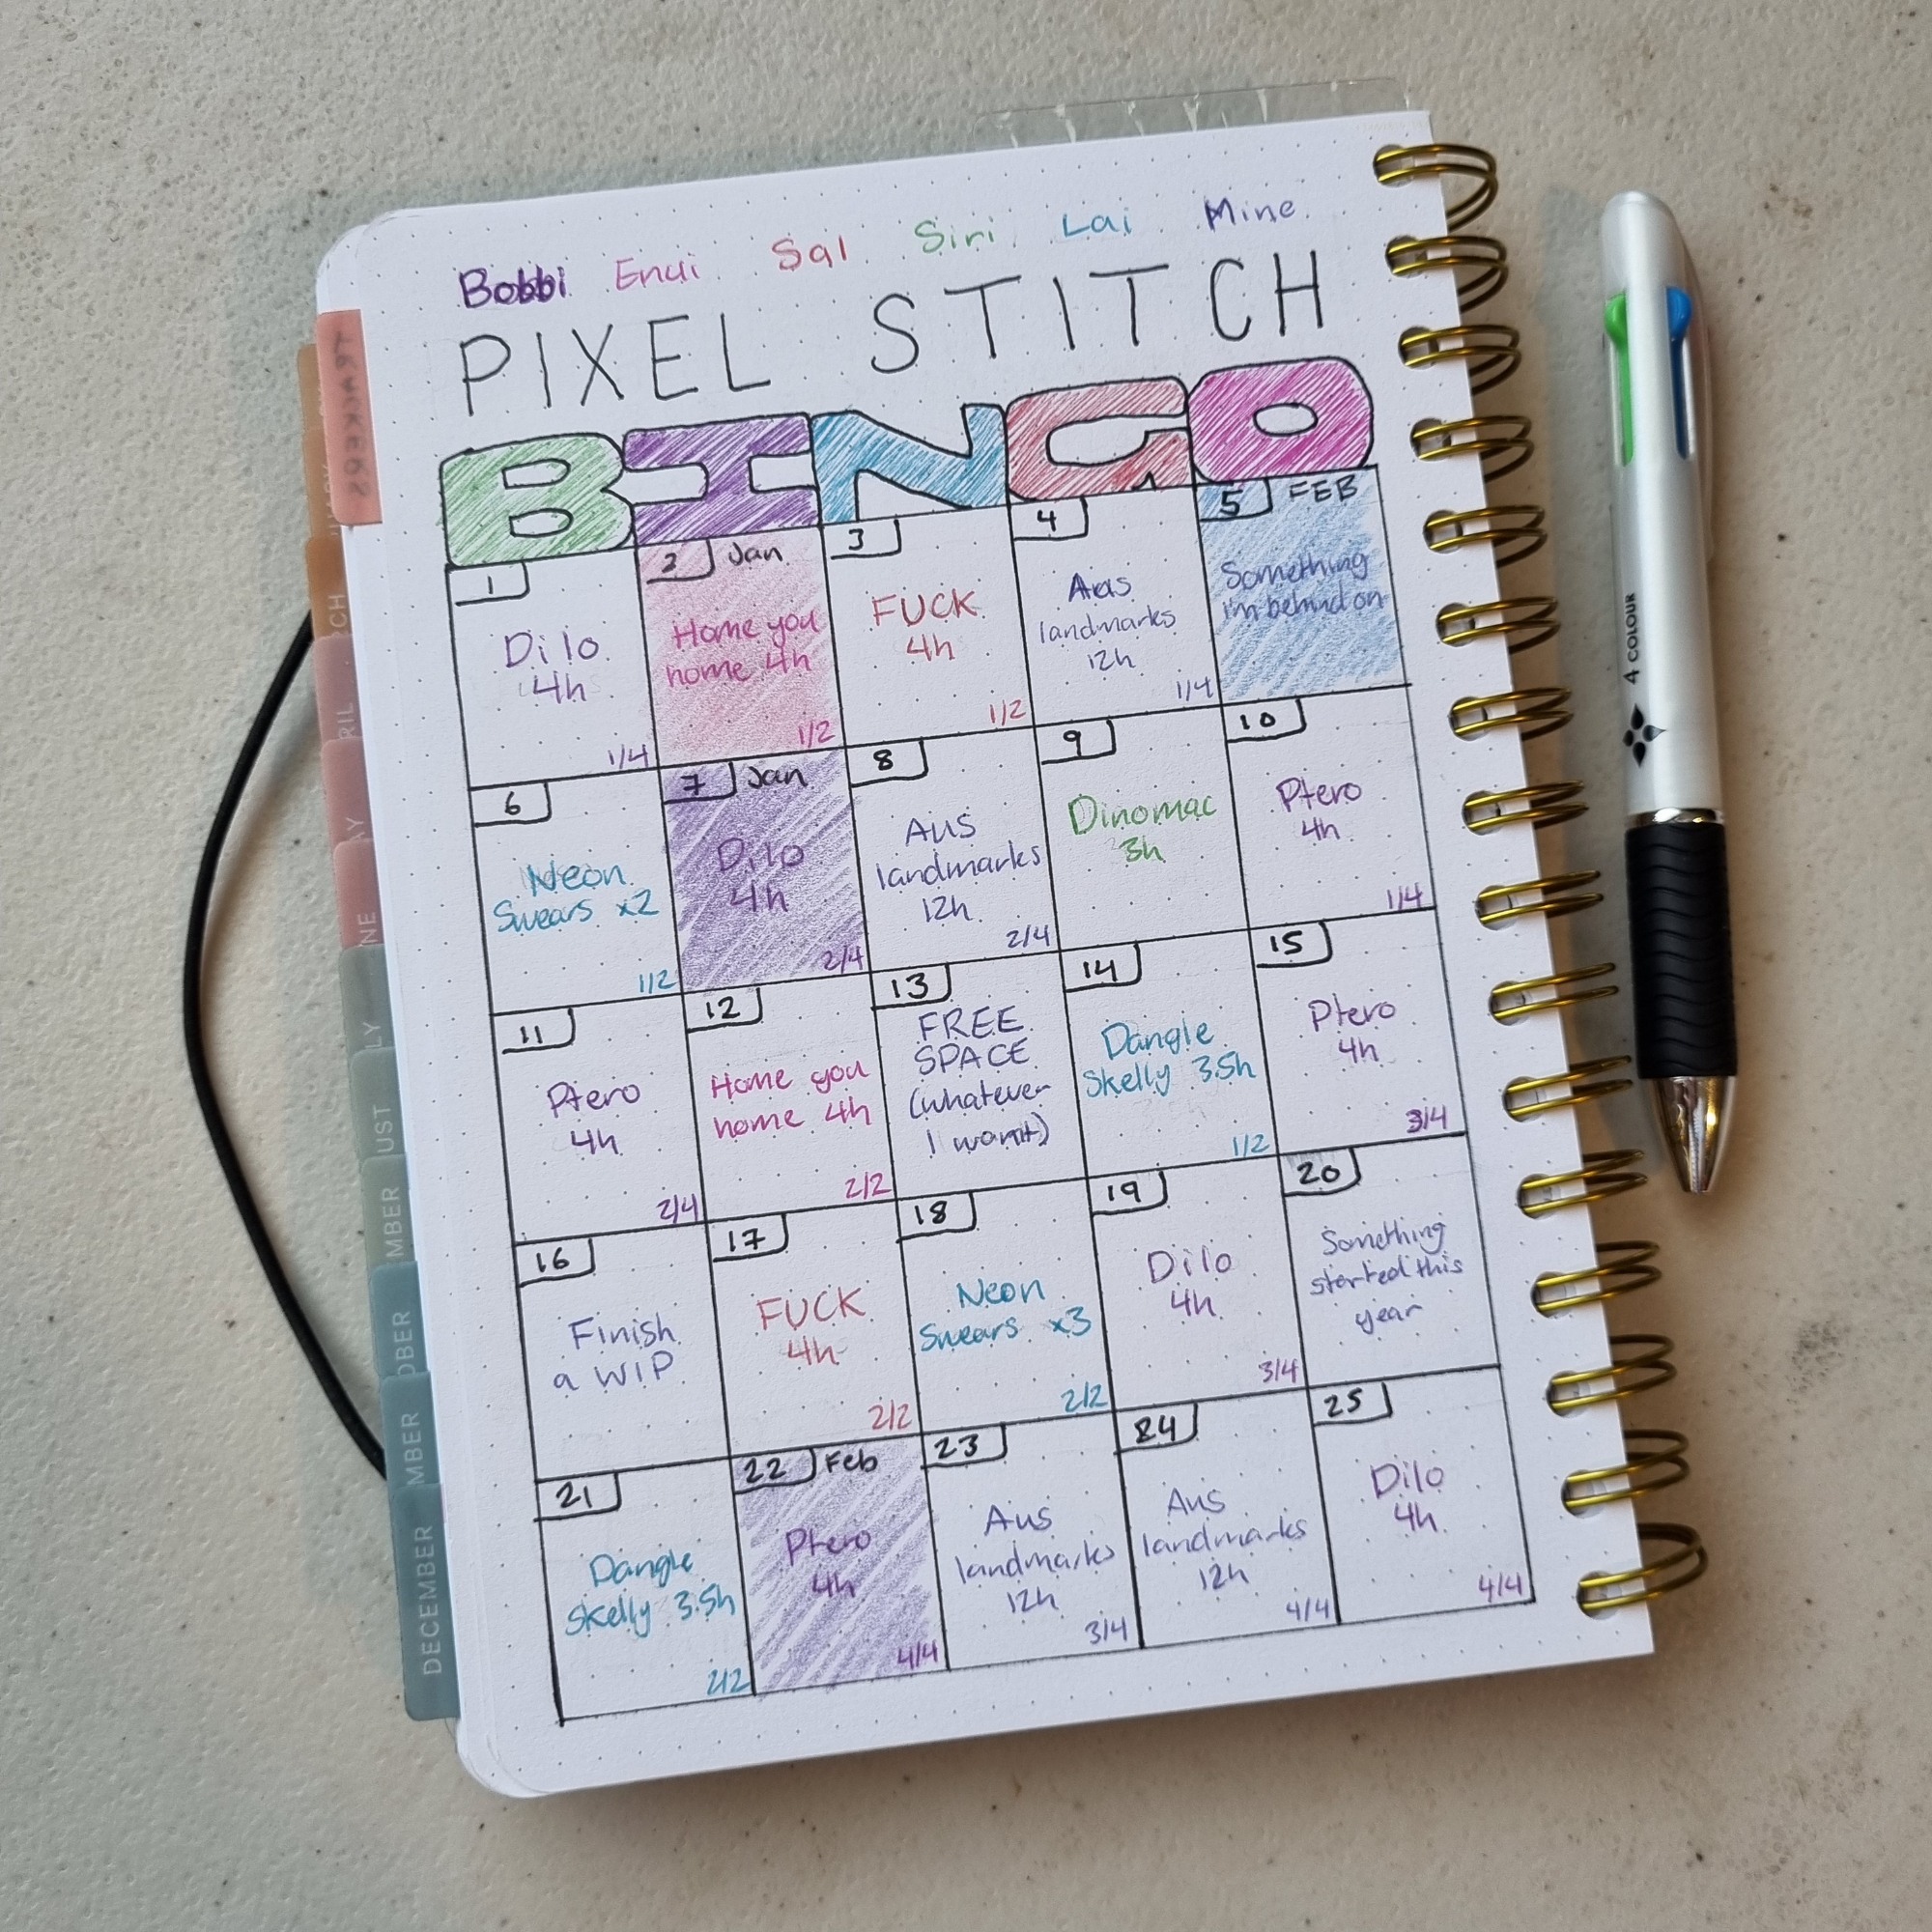 Bobbi Enui Sal Siri Lai Mine
PIXEL STITCH
BINGO
1
Dilo
4h
1/4
2 Jan
Home you
home 4h
1/2
3
FUCK
4h
1/2
4
Aus
landmarks
12h
1/4
5 FEB
Something
i'm behind on
6
Neon
Swears x2
1/2
7 Jan
Dilo
4h
2/4
8
Aus
landmarks
12h
2/4
9
Dinomac
3h
10
Ptero
4h
1/4
11
Ptero
4h
2/4
12
Home you
home 4h
2/2
13
FREE
SPACE
(whatever
I want)
14
Dangle
Skelly 3.5h
1/2
15
Ptero
4h
3/4
16
Finish
a WIP
17
FUCK
4h
2/2
18
Neon
Swears x3
2/2
19
Dilo
4h
3/4
20
Something
started this
year
21
Dangle
Skelly 3.5h
2/2
22 Feb
Ptero
4h
4/4
23
Aus
landmarks
12h
3/4
24
Aus
landmarks
12h
4/4
25
Dilo
4h
4/4
CH
RIL
AY
NE
LY
UST
MBER
OBER
MBER
DECEMBER
4 COLOUR